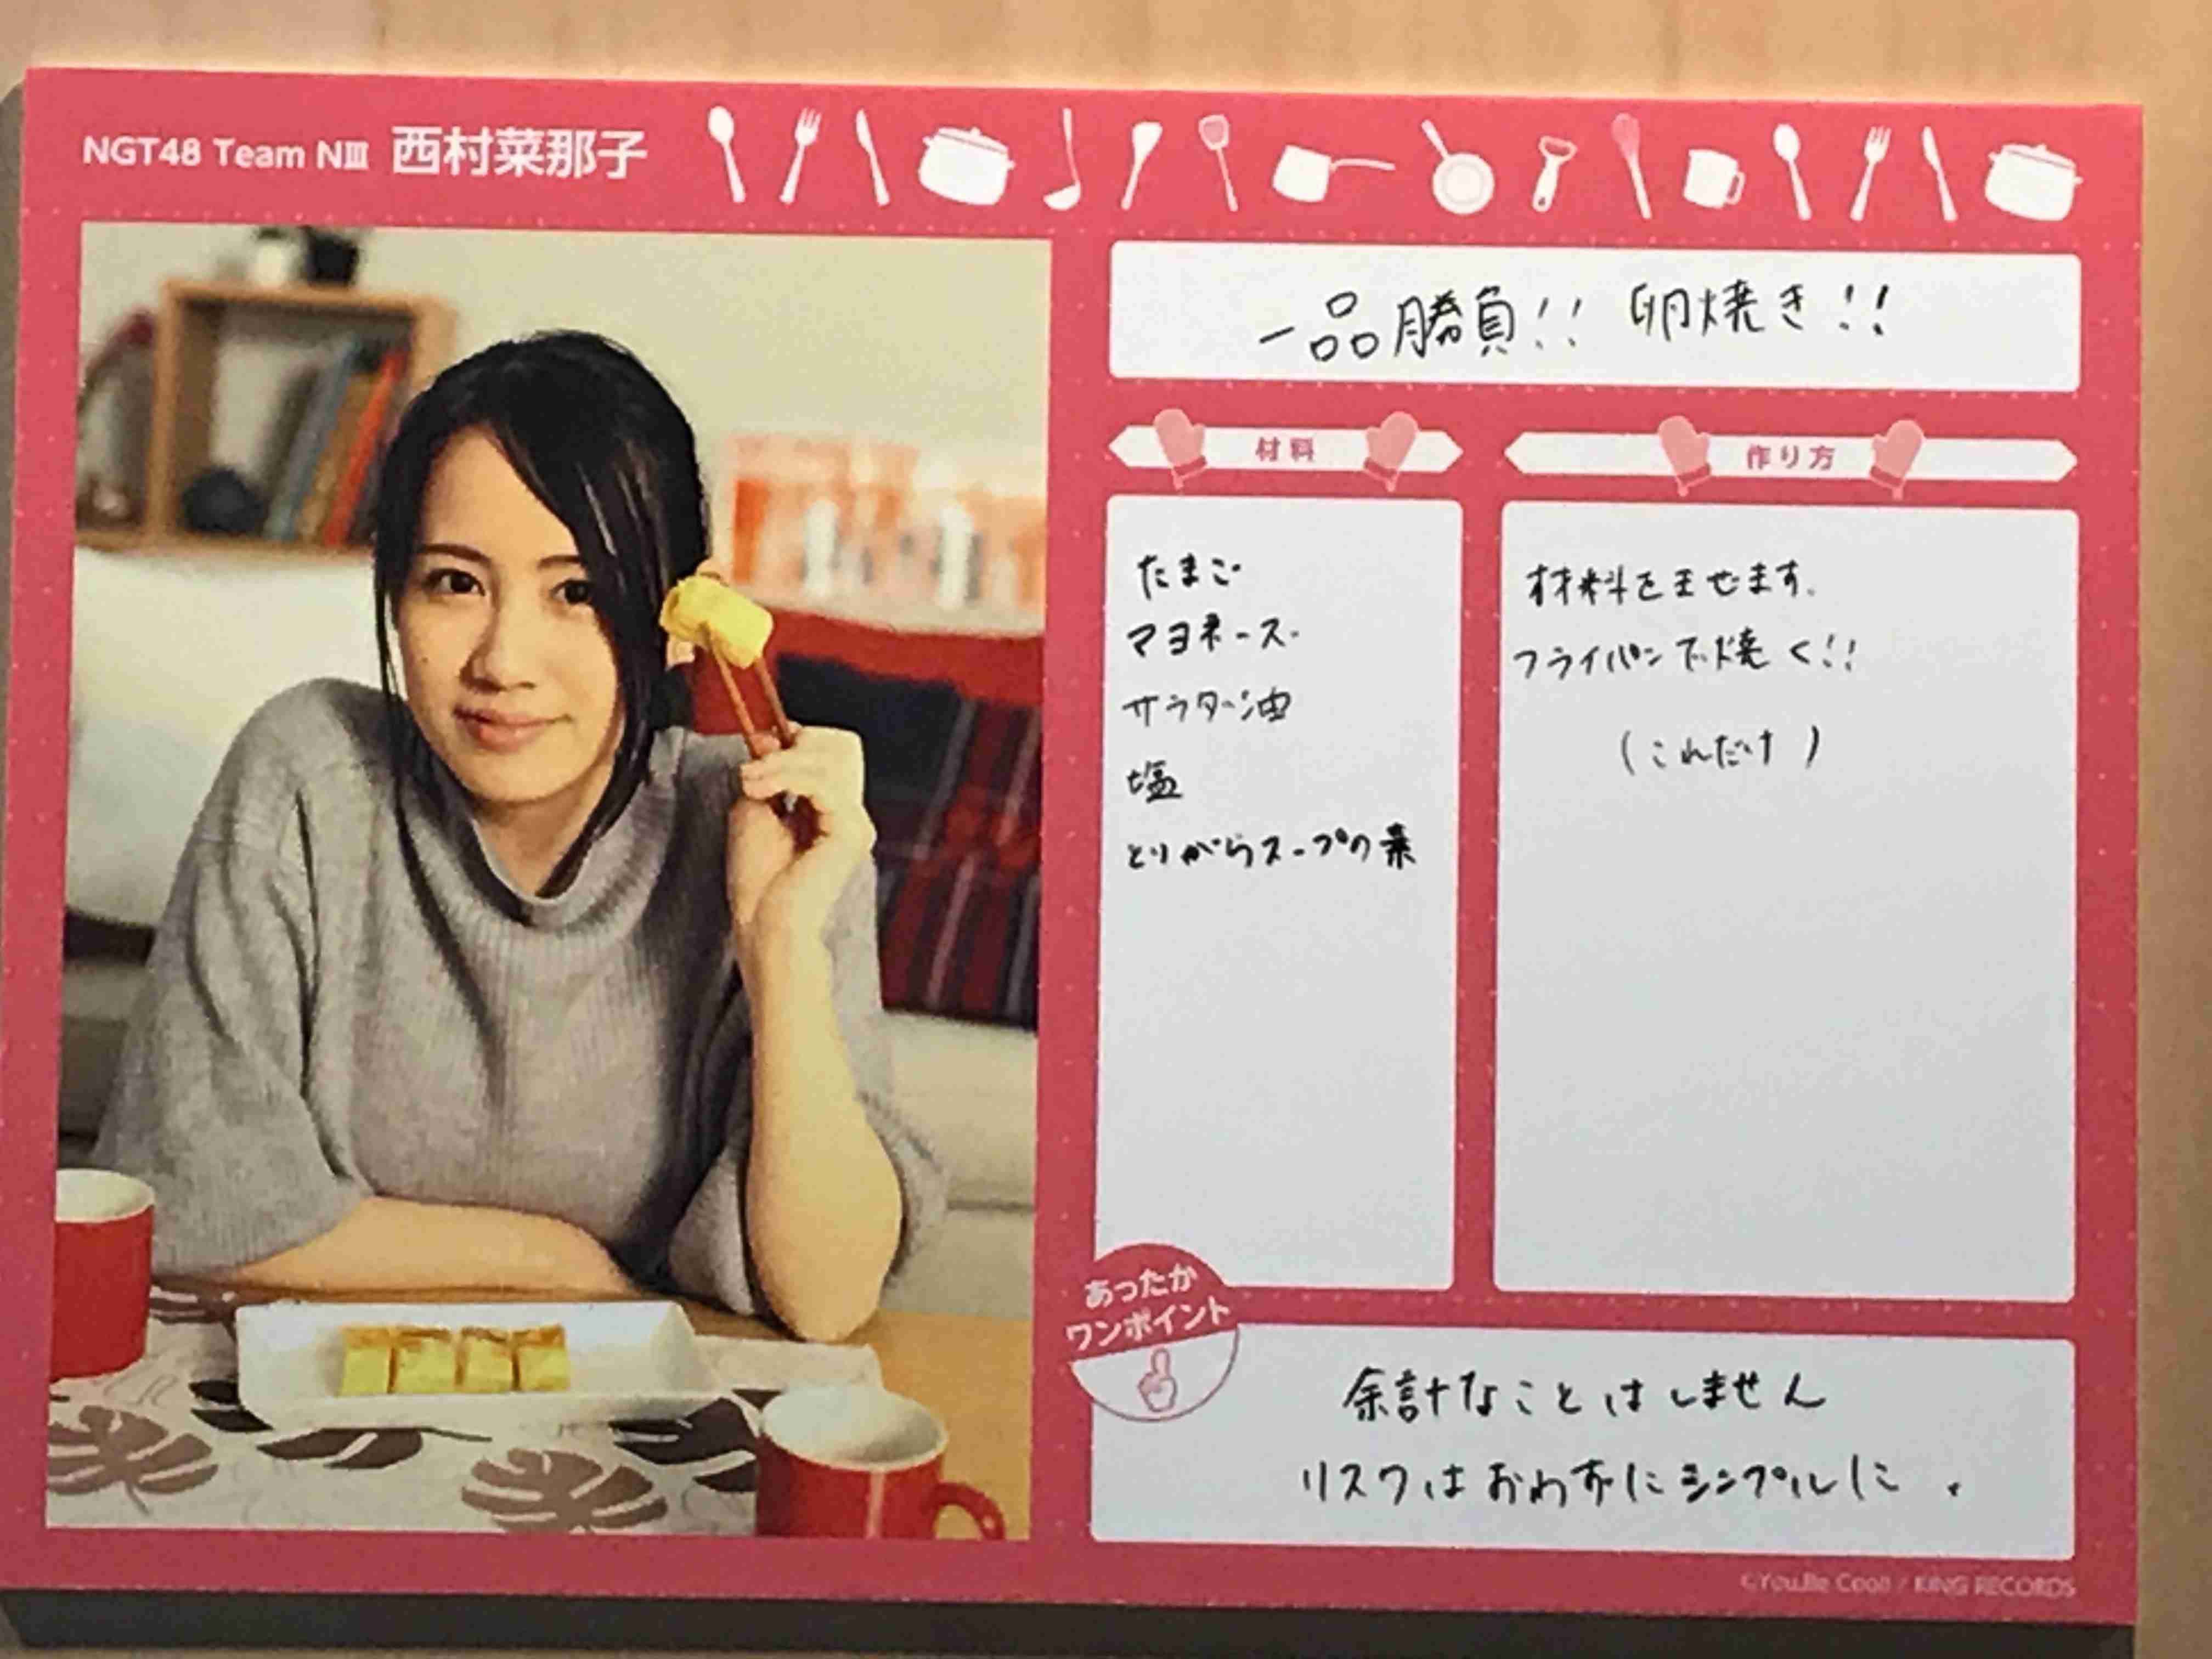 NGT48 Team NⅢ 西村菜那子
一品勝負!! 卵焼き!!
材料
たまご
マヨネーズ
サラダ油
塩
とりがらスープの素
作り方
材料をませます。
フライパンで焼く!!
(これだけ)
あったか
ワンポイント
余計なことはしません
リスクはおわずにシンプルに。
©You,Be Cool! / KING RECORDS